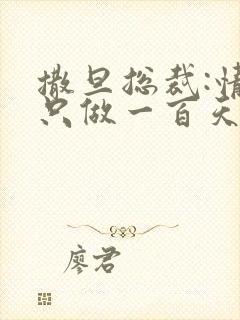 撒旦总裁:情
只做一百天
廖君